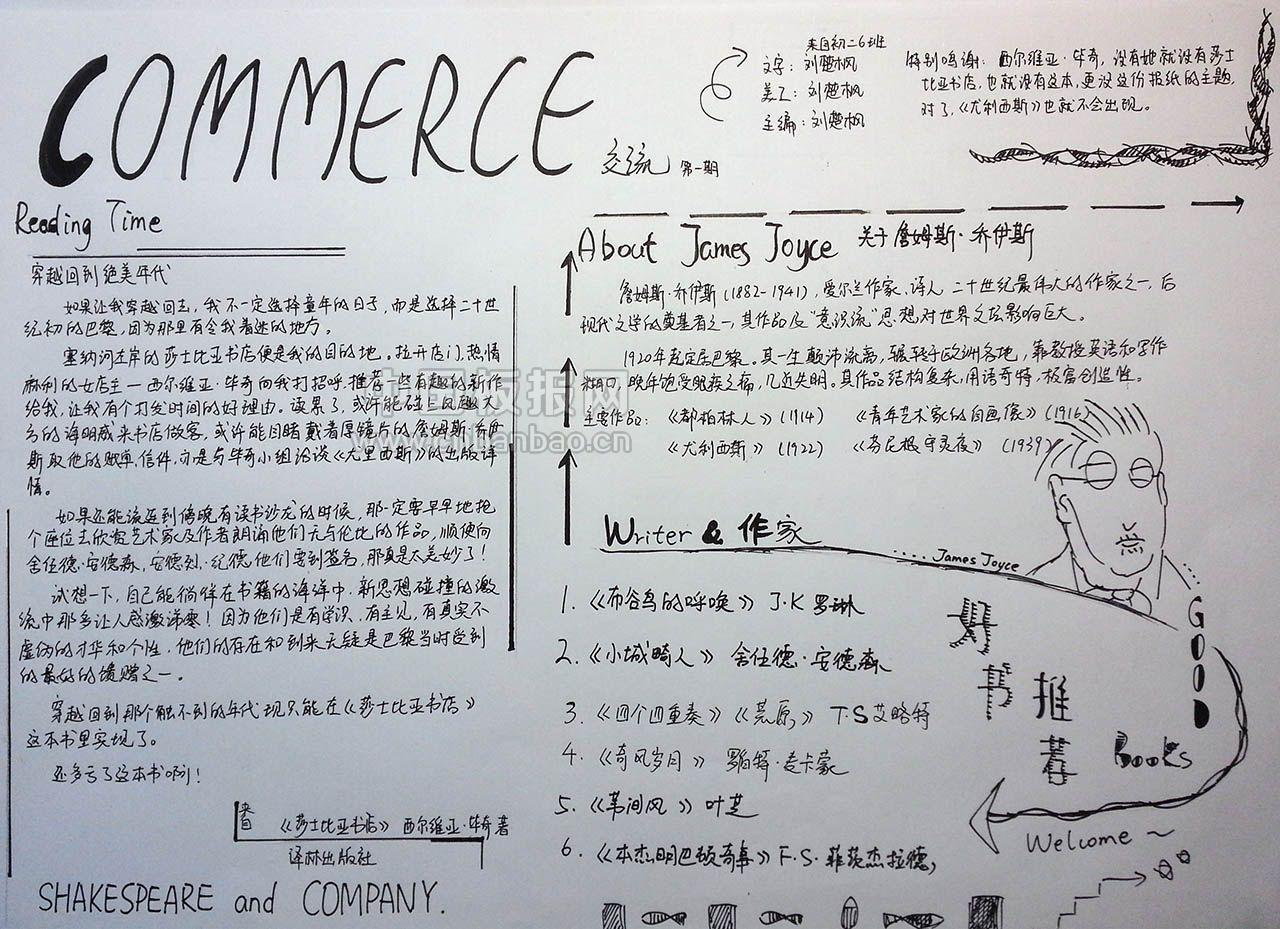 COMMERCE
交流 第一期
来自初二6班
文字：刘楚枫
美工：刘楚枫
主编：刘楚枫
特别鸣谢：西尔维亚·毕奇，没有她就没有莎士
比亚书店，也就没有这本，更没这份报纸的主题，
对了，《尤利西斯》也就不会出现。
Reading Time
穿越回到绝美年代
如果让我穿越回去，我不一定选择童年的日子，而是选择二十世
纪初的巴黎，因为那里有令我着迷的地方。
塞纳河左岸的莎士比亚书店便是我的目的地。拉开店门，热情
麻利的女店主－西尔维亚·毕奇向我打招呼，推荐一些有趣的新作
给我，让我有个打发时间的好理由。读累了，或许能碰上风趣大
方的海明威来书店做客，或许能目睹戴着厚镜片的詹姆斯·乔伊
斯取他的账单，信件，亦是与毕奇小姐洽谈《尤里西斯》的出版详
情。
如果还能流连到傍晚有读书沙龙的时候，那一定要早早地抢
个座位去欣赏艺术家及作者朗诵他们无与伦比的作品，顺便向
舍伍德·安德森，安德烈·纪德他们要到签名，那真是太美妙了！
试想一下，自己能徜徉在书籍的海洋中，新思想碰撞的激
流中那多让人感激涕零！因为他们是有学识，有主见，有真实不
虚伪的才华和个性，他们的存在和到来无疑是巴黎当时受到
的最好的馈赠之一。
穿越回到那个触不到的年代现只能在《莎士比亚书店》
这本书里实现了。
还多亏了这本书啊！
来自 《莎士比亚书店》 西尔维亚·毕奇著
译林出版社
SHAKESPEARE and COMPANY.
About James Joyce 关于詹姆斯·乔伊斯
詹姆斯·乔伊斯（1882-1941），爱尔兰作家、诗人 二十世纪最伟大的作家之一，后
现代文学的奠基者之一，其作品及“意识流”思想对世界文坛影响巨大。
1920年起定居巴黎。其一生颠沛流离，辗转于欧洲各地，靠教授英语和写作
糊口，晚年饱受眼疾之痛，几近失明。其作品结构复杂，用语奇特，极富创造性。
主要作品：《都柏林人》（1914） 《青年艺术家的自画像》（1916）
《尤利西斯》（1922） 《芬尼根守灵夜》（1939）
Writer & 作家
····James Joyce
1. 《布谷鸟的呼唤》 J·K 罗琳
2. 《小城畸人》 舍伍德·安德森
3. 《四个四重奏》《荒原》 T·S 艾略特
4. 《奇风岁月》 罗伯特·麦卡蒙
5. 《苇间风》 叶芝
6. 《本杰明巴顿奇事》 F·S·菲茨杰拉德
好书推荐
GOOD
Books
Welcome ~
中国板报网
www.banbao.cn